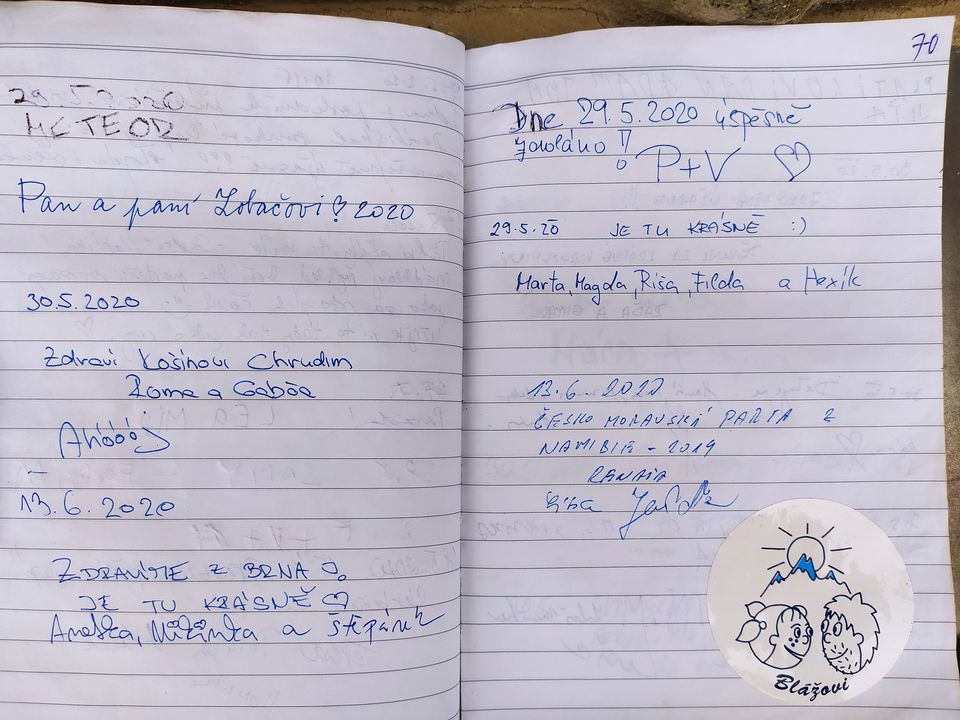 29.5.2020
METEOR
Pan a paní Zobačovi ♡ 2020
30.5.2020
Zdraví Košinovi Chrudim
Roma a Gabča
Ahóóój
13.6.2020
ZDRAVÍME Z BRNA
JE TU KRÁSNĚ ♡
Anetka, a Štěpánek
70
Dne 29.5.2020 úspěšně
zdoláno !!
P+V ♡
29.5.20 JE TU KRÁSNĚ :)
Marta, Magda, Ríša, Filda a Hexík
13.6-2020
ČESKO MORAVSKÁ PARTA Z
NAMIBIE - 2019
RENATA
Blážovi